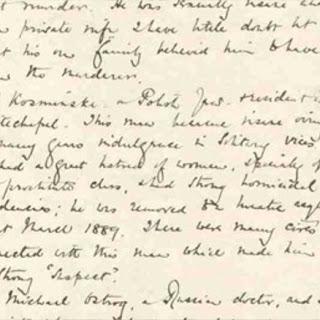 murder. He was sexually insane and
private info I have little doubt but
his own family believed him to have
the murderer.
Kosminski - a Polish Jew - & resident in
techapel. This man became insane owing
many years indulgence in solitary vices.
had a great hatred of women, specially of
prostitute class, & had strong homicidal
dencies; he was removed to a lunatic asyl
March 1889. There were many circs
nected with this man which made him
strong "suspect".
Michael Ostrog, a Russian doctor, and